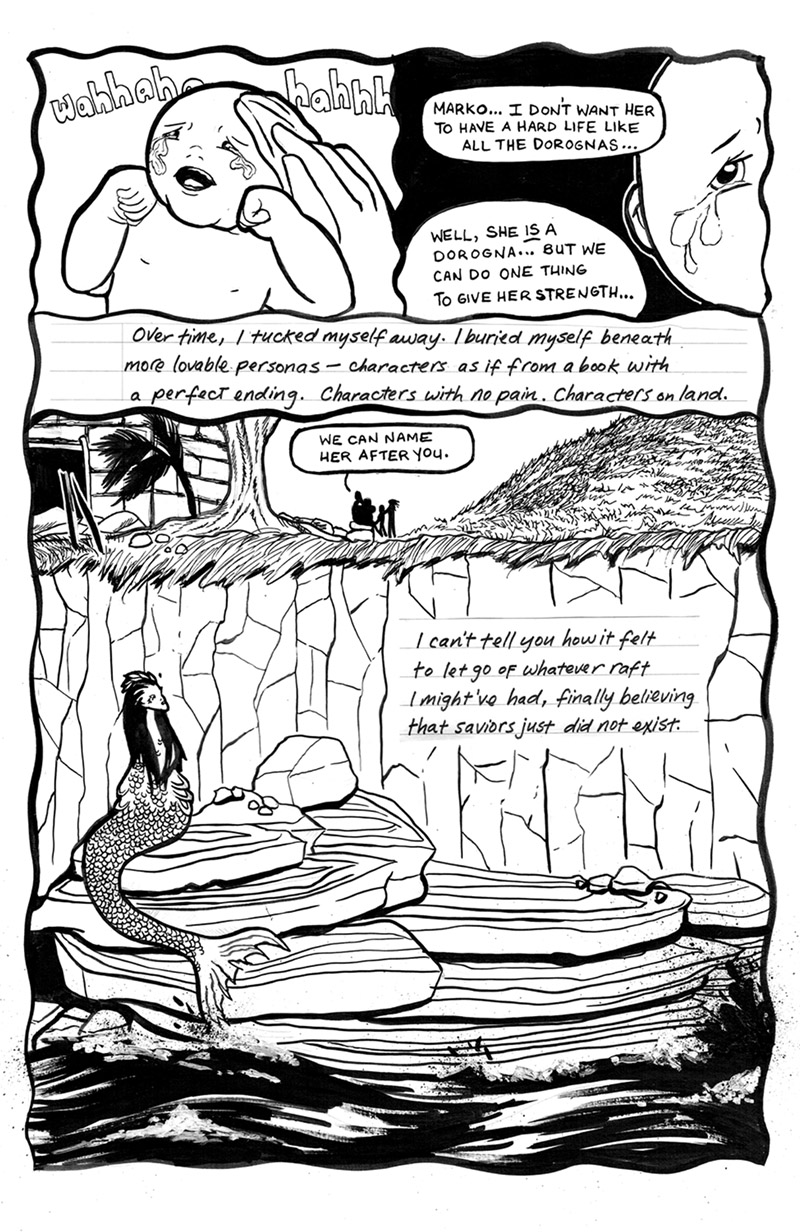 wahhaha
hahhh
MARKO... I DON'T WANT HER
TO HAVE A HARD LIFE LIKE
ALL THE DOROGNAS...
WELL, SHE IS A
DOROGNA... BUT WE
CAN DO ONE THING
TO GIVE HER STRENGTH...
Over time, I tucked myself away. I buried myself beneath
more lovable personas — characters as if from a book with
a perfect ending. Characters with no pain. Characters on land.
WE CAN NAME
HER AFTER YOU.
I can't tell you how it felt
to let go of whatever raft
I might've had, finally believing
that saviors just did not exist.